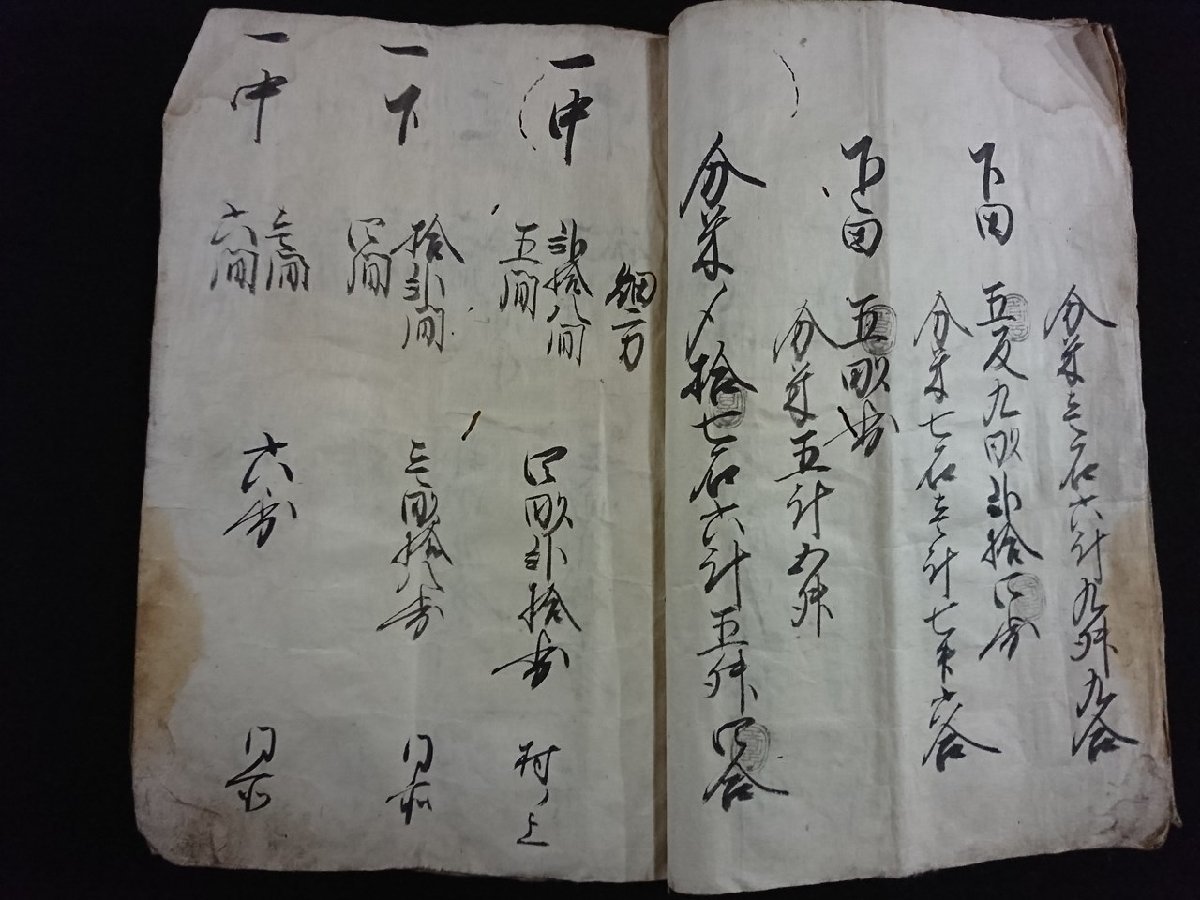 分米三石六斗九升九合
下田 五反九畝弐拾四歩
分米七石壱斗七升六合
下田 五畝歩
分米五斗五升
分米〆拾七石六斗五升四合
畑方
一中 弐拾八間 五間 四畝弐拾歩 村ノ上
一下 拾弐間 四間 三畝拾八歩 同所
一中 三間 六間 六歩 同所